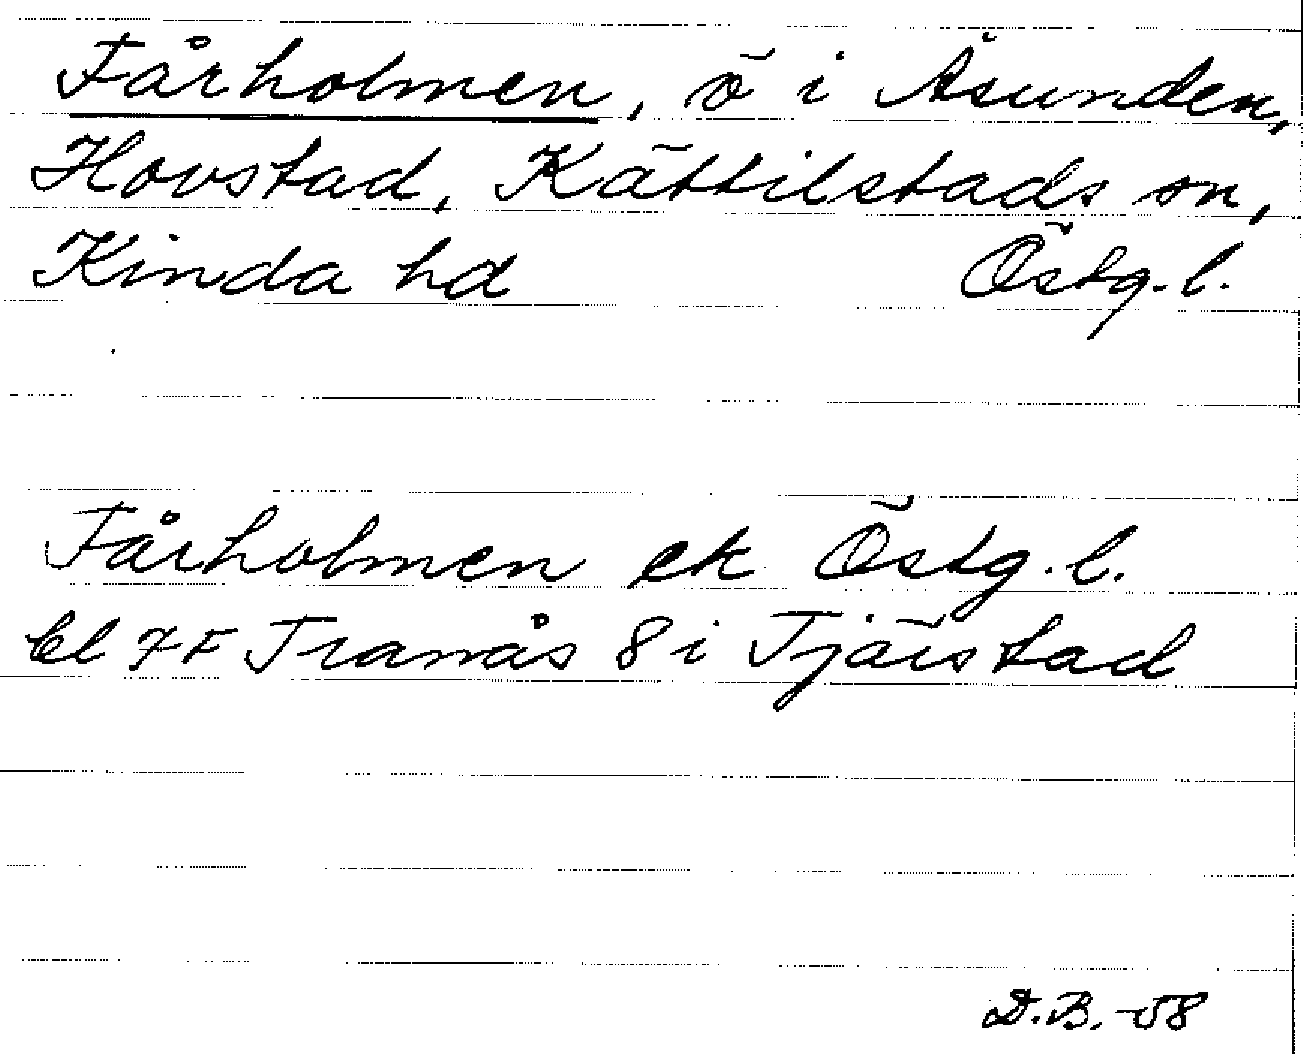 Fårholmen, ö i Åsunden,
Hovstad, Kättilstads sn,
Kinda hd Östg. l.
Fårholmen ek Östg. l.
bl 7F Tranås 8 i Tjärstad
D.B. -58